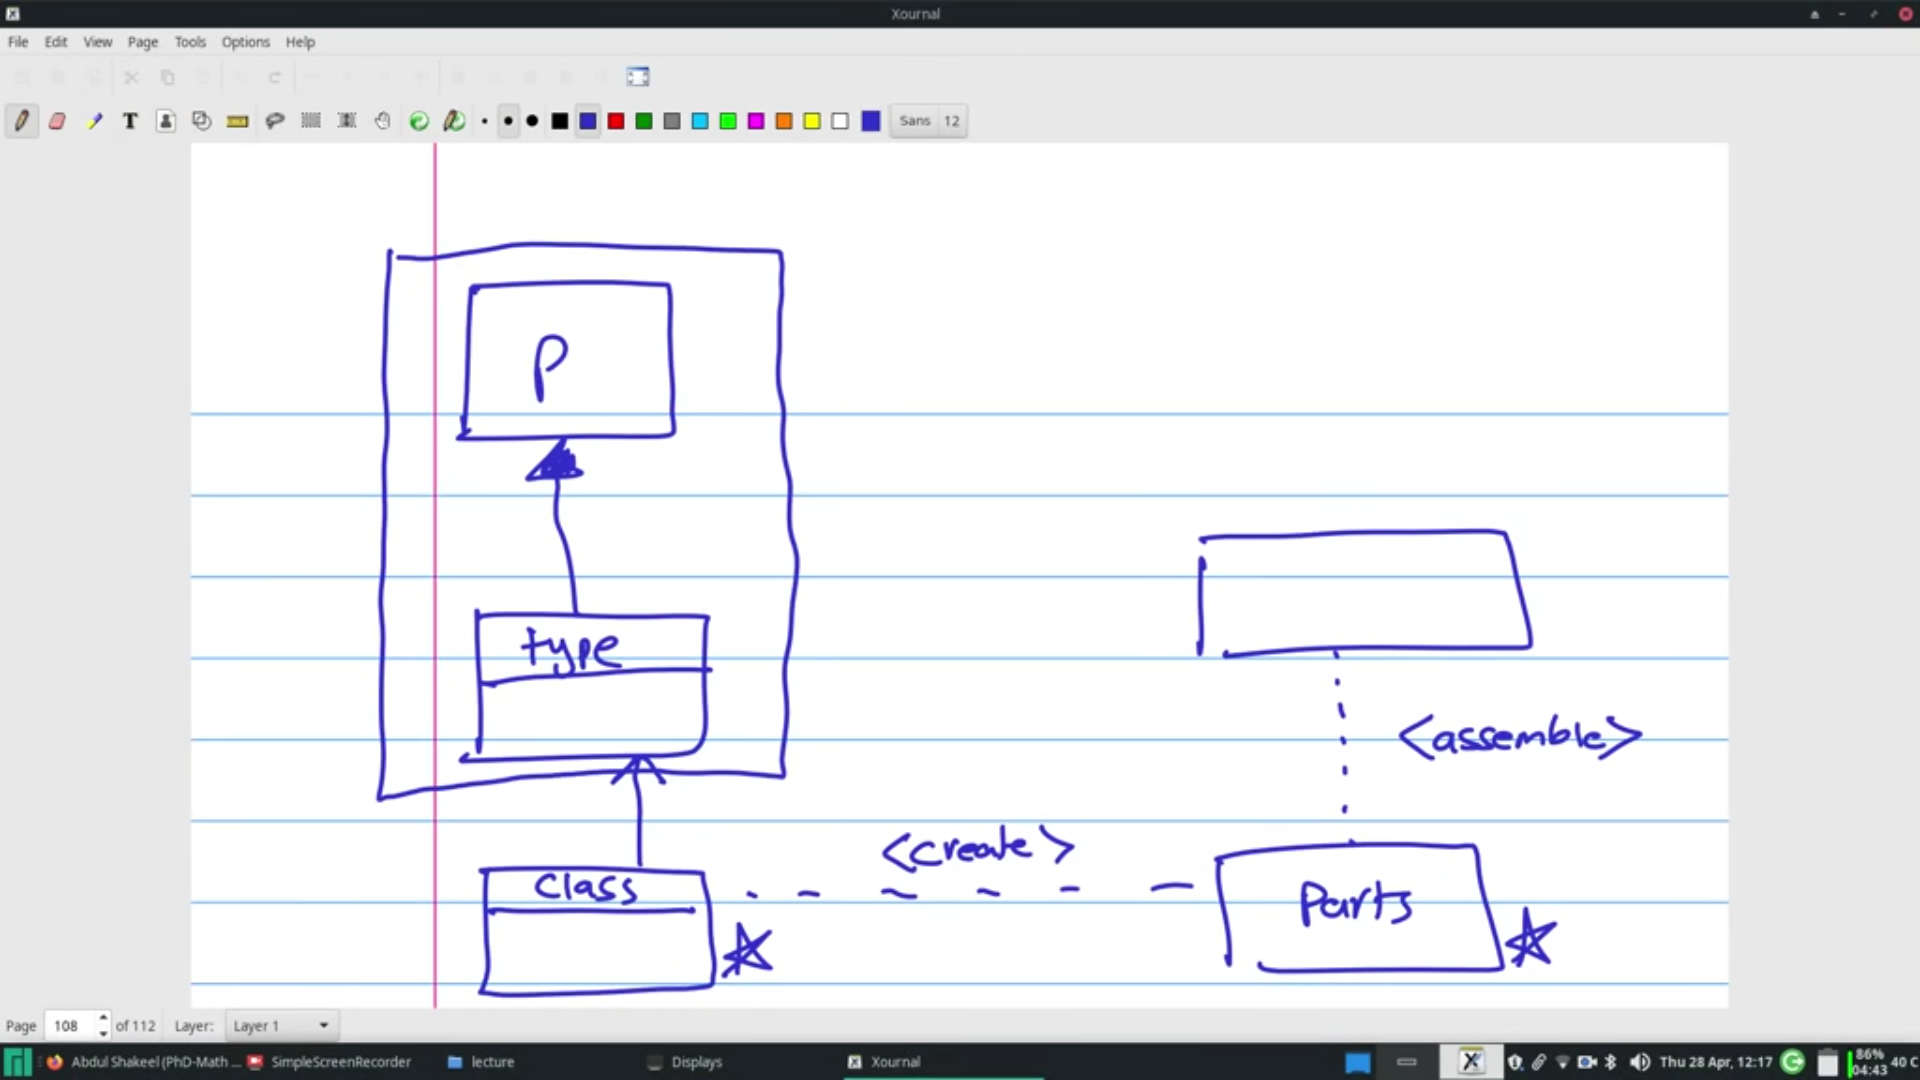 Xournal
File Edit View Page Tools Options Help
T Sans 12
P
type
<assemble>
<create>
Class
Parts
Page 108 of 112 Layer: Layer 1
Abdul Shakeel (PhD-Math ... SimpleScreenRecorder lecture Displays Xournal Thu 28 Apr, 12:17 86% 04:43 40 C